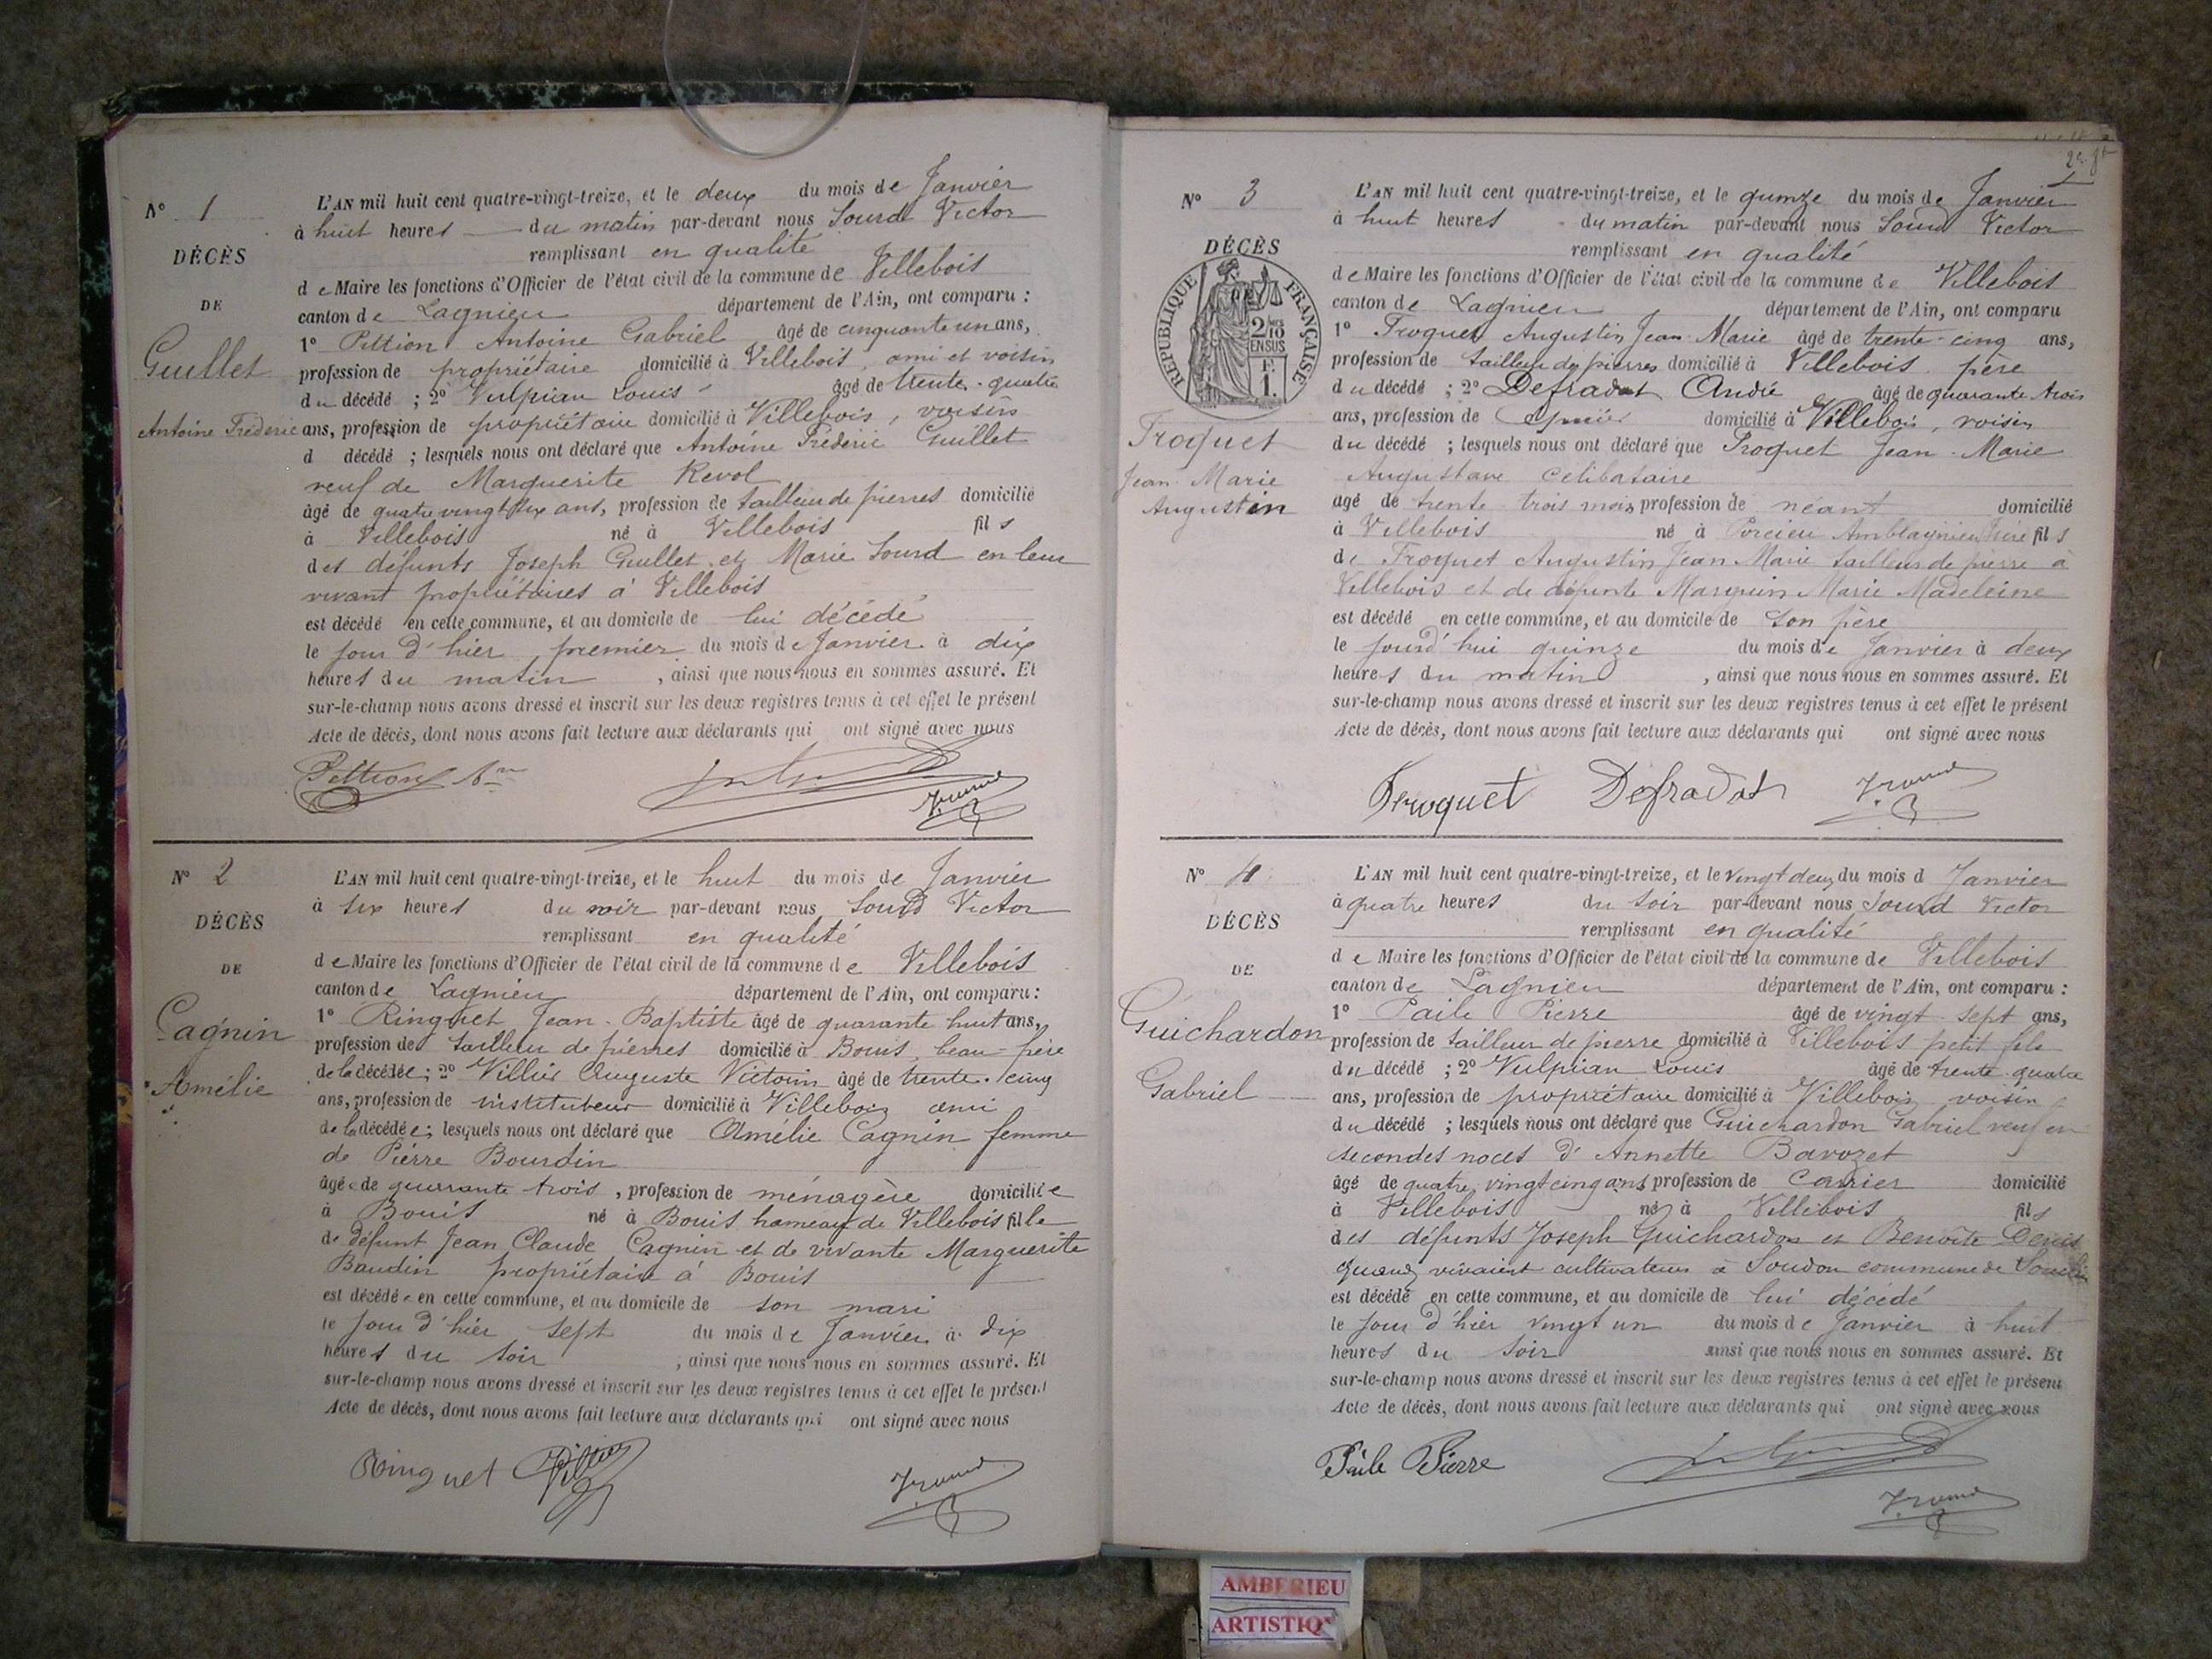 N° 1
DÉCÈS
DE
Guillet
Antoine Fréderic
L'AN mil huit cent quatre-vingt-treize, et le deux du mois de Janvier
à huit heures du matin par-devant nous Sourd Victor
remplissant en qualité
de Maire les fonctions d'Officier de l'état civil de la commune de Villebois
canton de Lagnieu département de l'Ain, ont comparu :
1° Pittion Antoine Gabriel âgé de cinquante un ans,
profession de propriétaire domicilié à Villebois, ami et voisin
du décédé ; 2° Vulpian Louis âgé de trente-quatre
ans, profession de propriétaire domicilié à Villebois, voisin
d décédé ; lesquels nous ont déclaré que Antoine Fréderic Guillet
veuf de Marguerite Revol
âgé de quatre vingt ans, profession de tailleur de pierres domicilié
à Villebois né à Villebois fils
des défunts Joseph Guillet et Marie Sourd en leur
vivant propriétaires à Villebois
est décédé en cette commune, et au domicile de lui décédé
le jour d'hier premier du mois de Janvier à dix
heures du matin, ainsi que nous nous en sommes assuré. Et
sur-le-champ nous avons dressé et inscrit sur les deux registres tenus à cet effet le présent
Acte de décès, dont nous avons fait lecture aux déclarants qui ont signé avec nous
Pittion
N° 2
DÉCÈS
DE
Cagnin
Amélie
L'AN mil huit cent quatre-vingt-treize, et le huit du mois de Janvier
à six heures du soir par-devant nous Sourd Victor
remplissant en qualité
de Maire les fonctions d'Officier de l'état civil de la commune de Villebois
canton de Lagnieu département de l'Ain, ont comparu :
1° Ringuet Jean-Baptiste âgé de quarante huit ans,
profession de tailleur de pierres domicilié à Bouis, beau-frère
de la décédée ; 2° Villier Auguste Victorin âgé de trente-cinq
ans, profession de instituteur domicilié à Villebois ami
de la décédée ; lesquels nous ont déclaré que Amélie Cagnin femme
de Pierre Bourdin
âgée de quarante trois, profession de ménagère domiciliée
à Bouis né à Bouis hameau de Villebois fille
de défunt Jean Claude Cagnin et de vivante Marguerite
Baudin propriétaire à Bouis
est décédée en cette commune, et au domicile de son mari
le jour d'hier sept du mois de Janvier à dix
heures du soir, ainsi que nous nous en sommes assuré. Et
sur-le-champ nous avons dressé et inscrit sur les deux registres tenus à cet effet le présent
Acte de décès, dont nous avons fait lecture aux déclarants qui ont signé avec nous
Ringuet Villier
N° 3
DÉCÈS
DE
RÉPUBLIQUE FRANÇAISE
2 10
EN SUS
F.
1.
Troquet
Jean-Marie
Augustin
L'AN mil huit cent quatre-vingt-treize, et le quinze du mois de Janvier
à huit heures du matin par-devant nous Sourd Victor
remplissant en qualité
de Maire les fonctions d'Officier de l'état civil de la commune de Villebois
canton de Lagnieu département de l'Ain, ont comparu
1° Troquet Augustin Jean-Marie âgé de trente-cinq ans,
profession de tailleur de pierres domicilié à Villebois père
du décédé ; 2° Defradat André âgé de quarante trois
ans, profession de domicilié à Villebois, voisin
du décédé ; lesquels nous ont déclaré que Troquet Jean-Marie
Augustave celibataire
âgé de trente-trois mois profession de néant domicilié
à Villebois né à Porcieu Amblagnieu Isère fils
de Troquet Augustin Jean Marie tailleur de pierre à
Villebois et de défunte Marguin Marie Madeleine
est décédé en cette commune, et au domicile de son père
le jourd'hui quinze du mois de Janvier à deux
heures du matin, ainsi que nous nous en sommes assuré. Et
sur-le-champ nous avons dressé et inscrit sur les deux registres tenus à cet effet le présent
Acte de décès, dont nous avons fait lecture aux déclarants qui ont signé avec nous
Troquet Defradat
N° 4
DÉCÈS
DE
Guichardon
Gabriel
L'AN mil huit cent quatre-vingt-treize, et le vingt deux du mois d Janvier
à quatre heures du soir par-devant nous Sourd Victor
remplissant en qualité
de Maire les fonctions d'Officier de l'état civil de la commune de Villebois
canton de Lagnieu département de l'Ain, ont comparu :
1° Paile Pierre âgé de vingt-sept ans,
profession de tailleur de pierre domicilié à Villebois petit fils
du décédé ; 2° Vulpian Louis âgé de trente-quatre
ans, profession de propriétaire domicilié à Villebois voisin
du décédé ; lesquels nous ont déclaré que Guichardon Gabriel veuf en
secondes noces d'Annette Bavozet
âgé de quatre vingt cinq ans profession de carrier domicilié
à Villebois né à Villebois fils
des défunts Joseph Guichardon et Benoîte Denis
quand vivaient cultivateurs à Soudon commune de
est décédé en cette commune, et au domicile de lui décédé
le jour d'hier vingt un du mois de Janvier à huit
heures du soir ainsi que nous nous en sommes assuré. Et
sur-le-champ nous avons dressé et inscrit sur les deux registres tenus à cet effet le présent
Acte de décès, dont nous avons fait lecture aux déclarants qui ont signé avec nous
Paile Pierre
AMBERIEU
ARTISTIQ